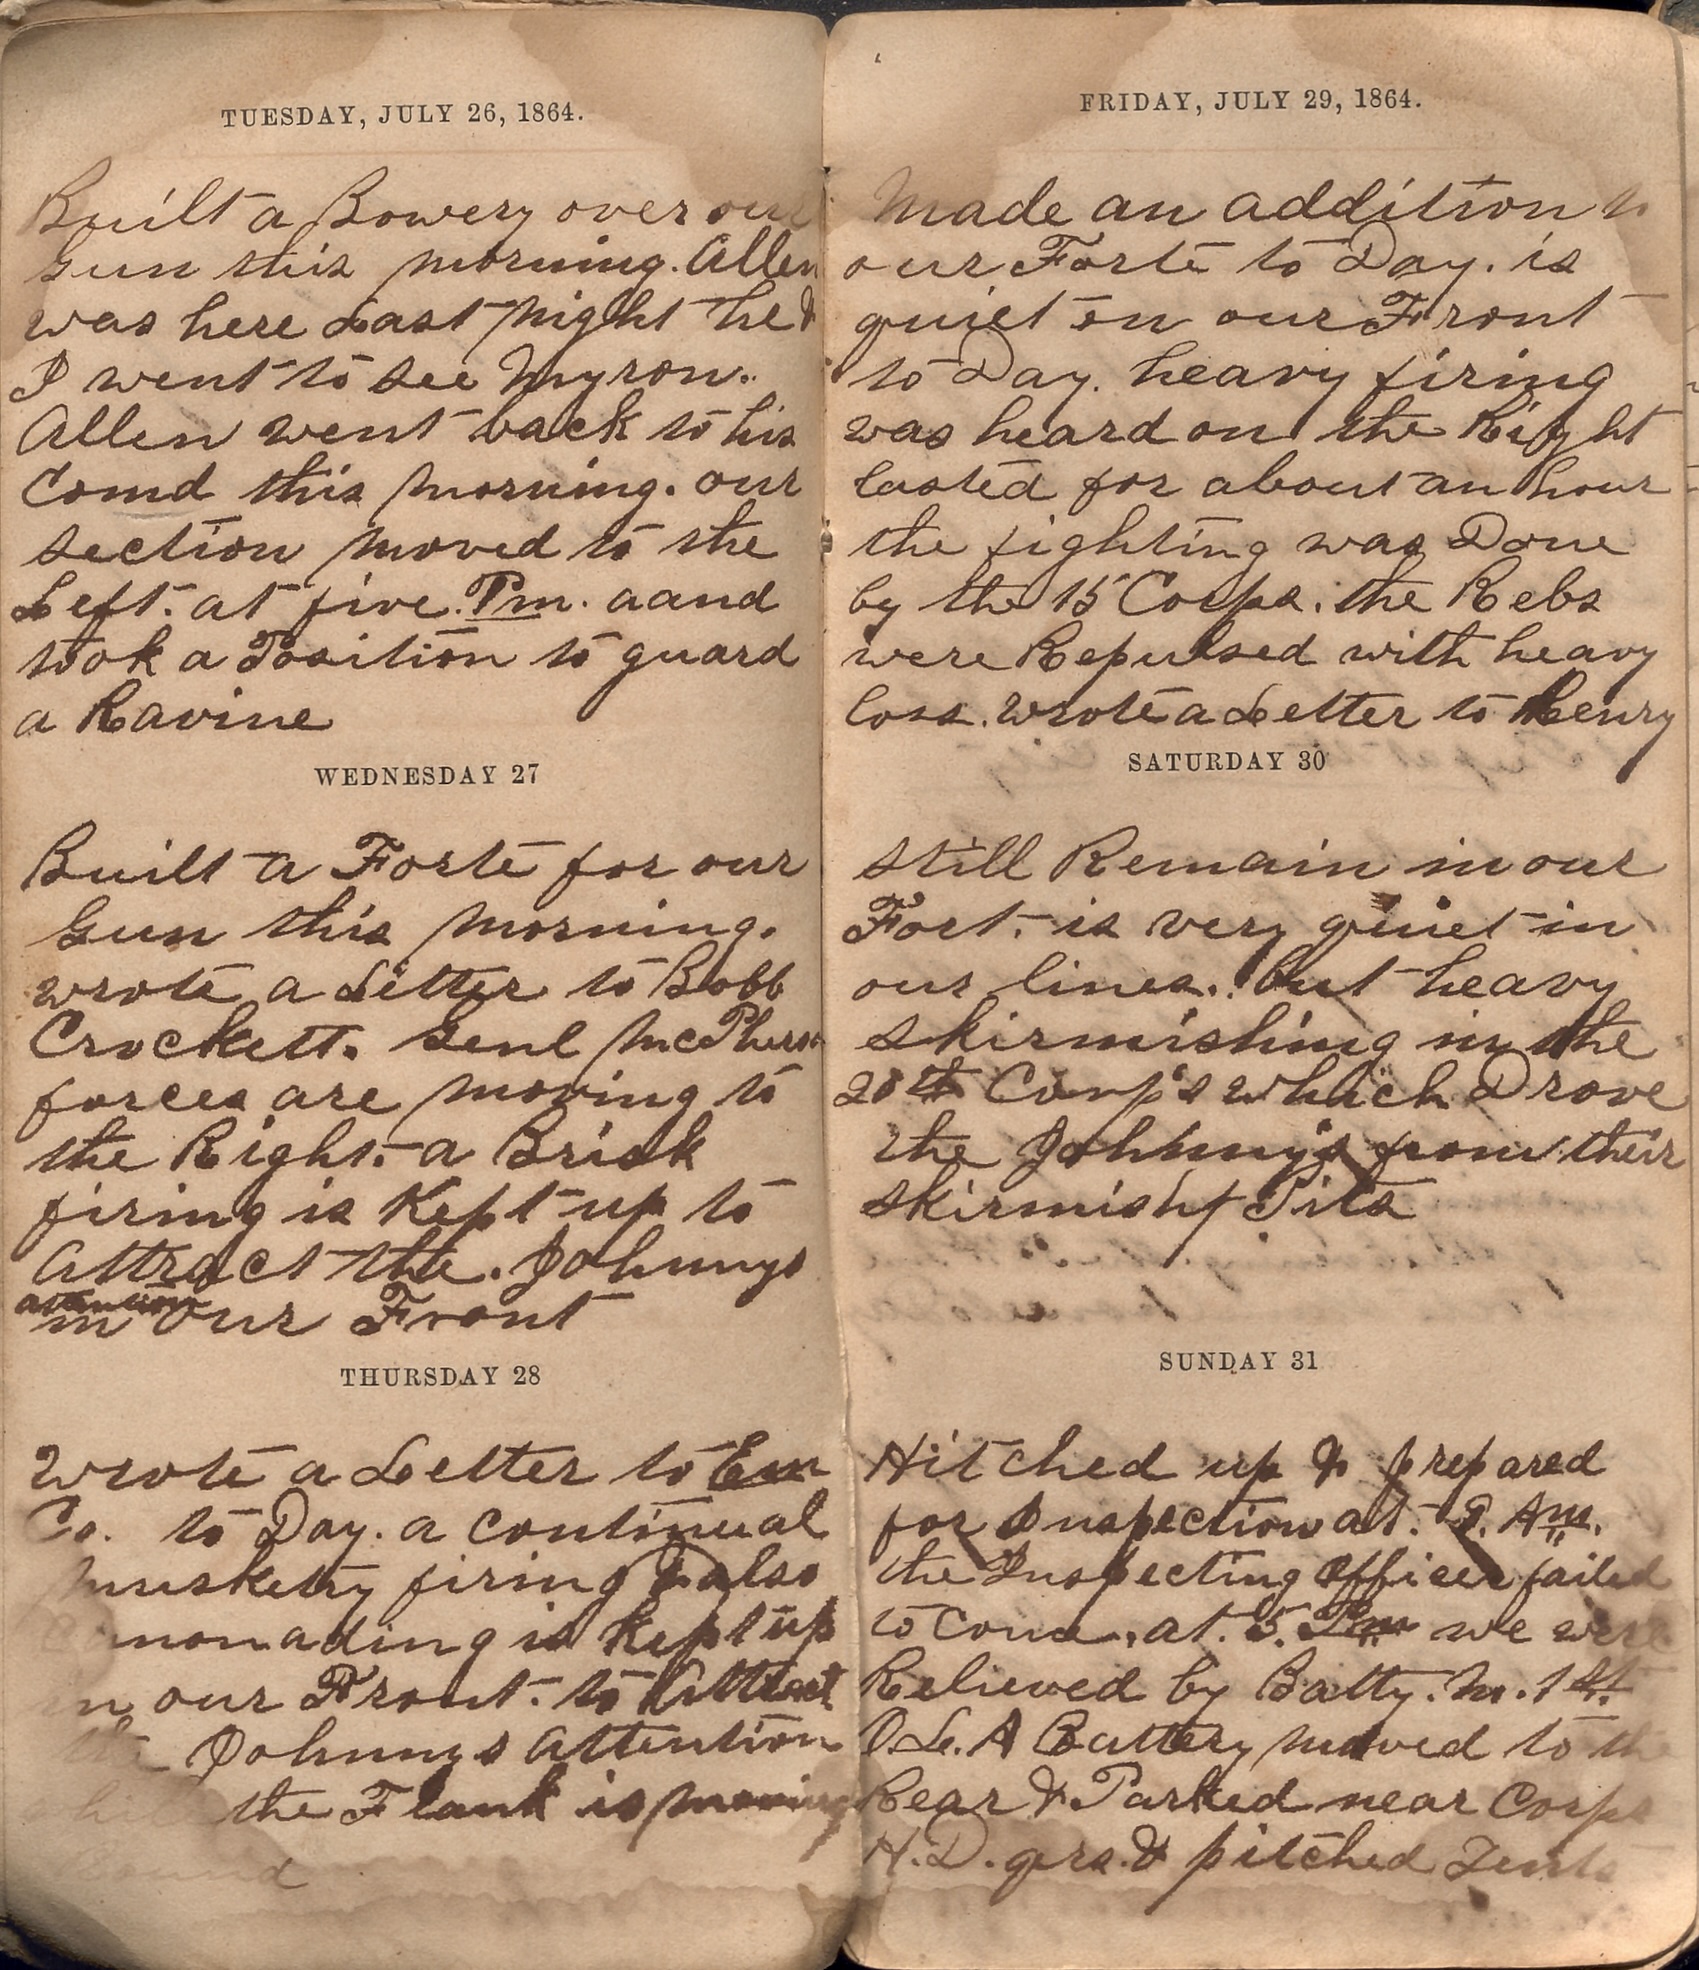 TUESDAY, JULY 26, 1864.
Built a Bowery over our
Gun this morning. Allen
was here Last Night he &
I went to see Myron.
Allen went back to his
Comd this morning. our
section moved to the
Left. at five. Pm. aand
took a Position to guard
a Ravine
WEDNESDAY 27
Built a Forte for our
Gun this morning.
wrote a Letter to Bobb
Crockett. Genl McPherson
forces are moving to
the Right. a Brisk
firing is Kept up to
attract the. Johnnys
attention
in our Front
THURSDAY 28
Wrote a Letter to Em
Co. to Day. a continual
musketry firing & also
canonading is Kept up
in our Front. to Attract
the Johnnys attention
the Flank is moving
Round
FRIDAY, JULY 29, 1864.
Made an addition to
our Forte to Day. is
quiet on our Front
to Day. heavy firing
was heard on the Right
lasted for about an hour
the fighting was Done
by the 15 Corps. the Rebs
were Repulsed with heavy
loss. wrote a Letter to Henry
SATURDAY 30
still Remain in our
Fort. is very quiet in
our lines. but heavy
skirmishing in the
20th Corp's which Drove
the Johnny's from their
skirmish Pits
SUNDAY 31
Hitched up & prepared
for Inspection at. Am.
the Inspecting officer failed
to come. at. 5. Pm we were
Relieved by Batty. M. 1st.
O.L.A Battery moved to the
Rear & Parked near Corps
H.D. qrs. & pitched Tents